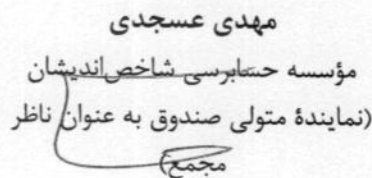 مهدی عسجدی
مؤسسه حسابرسی شاخص‌اندیشان
(نمایندهٔ متولی صندوق به عنوان ناظر
مجمع)